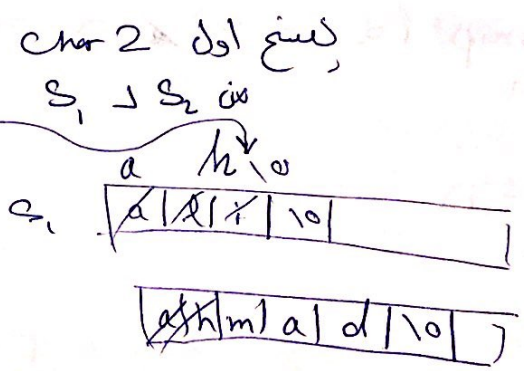 ينسخ اول 2 char
من S2 ل S1
a h \0
S1 a l i \0
a h m a d \0